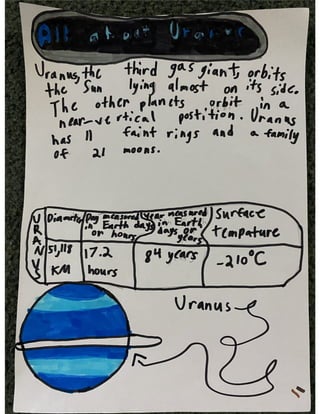 All about Uranus
Uranus, the third gas giant, orbits
the Sun lying almost on its side.
The other planets orbit in a
near-vertical postition. Uranus
has 11 faint rings and a family
of 21 moons.
URANUS
Diameter
Day measured in Earth days or hours
Year measured in Earth days or years
Surface Tempature
51,118 KM
17.2 hours
84 years
-210°C
Uranus